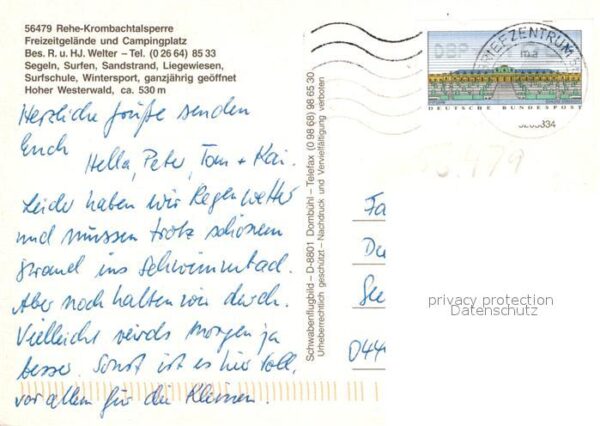 56479 Rehe-Krombachtalsperre
Freizeitgelände und Campingplatz
Bes. R. u. HJ. Welter – Tel. (0 26 64) 85 33
Segeln, Surfen, Sandstrand, Liegewiesen,
Surfschule, Wintersport, ganzjährig geöffnet
Hoher Westerwald, ca. 530 m
Herzliche Grüße senden
Euch
Hella, Peter, Tom + Kai.
Leider haben wir Regenwetter
und müssen trotz schönem
Strand ins Schwimmbad.
Aber noch halten wir durch.
Vielleicht wirds morgen ja
besser. Sonst ist es hier toll,
vor allem für die Kleinen.
Schwabenflugbild – D-8801 Dombühl – Telefax (0 98 68) 98 65 30
Urheberrechtlich geschützt – Nachdruck und Vervielfältigung verboten
DBP
BRIEFZENTRUM
DEUTSCHE BUNDESPOST
Fa
Du
See
044
privacy protection
Datenschutz